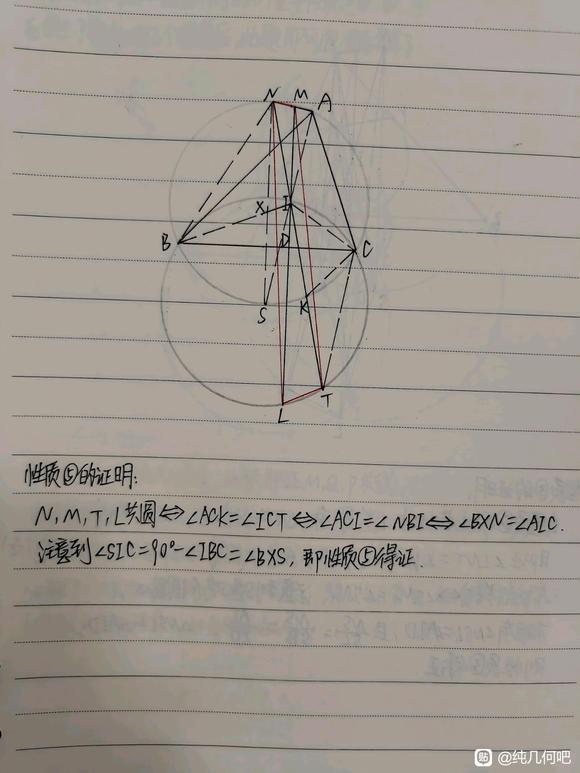 N M A
X I
B D C
S K
L T
性质⑤的证明:
N,M,T,L共圆⇔∠ACK=∠ICT⇔∠ACI=∠NBI⇔∠BXN=∠AIC.
注意到∠SIC=90°-∠IBC=∠BXS,即性质⑤得证.
贴 @纯几何吧